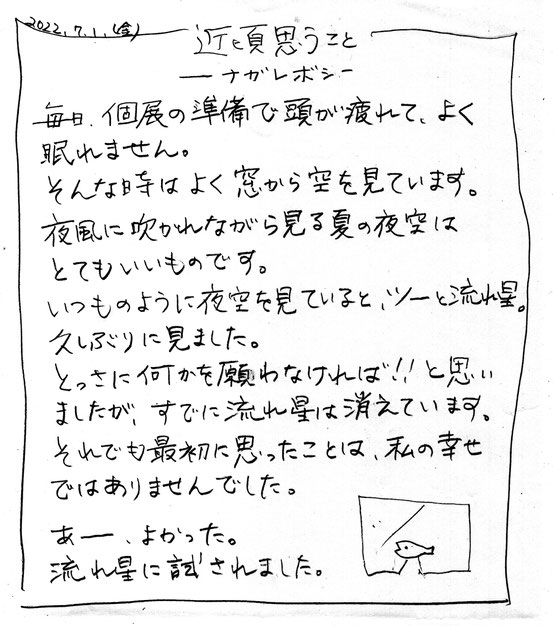 2022.7.1.(金)
近頃思うこと
—ナガレボシー
毎日、個展の準備で頭が疲れて、よく
眠れません。
そんな時はよく窓から空を見ています。
夜風に吹かれながら見る夏の夜空は
とてもいいものです。
いつものように夜空を見ていると、ツーと流れ星。
久しぶりに見ました。
とっさに何かを願わなければ!!と思い
ましたが、すでに流れ星は消えています。
それでも最初に思ったことは、私の幸せ
ではありませんでした。
あー、よかった。
流れ星に試されました。